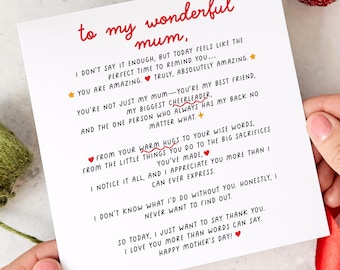 to my wonderful
mum,
I DON'T SAY IT ENOUGH, BUT TODAY FEELS LIKE THE
PERFECT TIME TO REMIND YOU...
YOU ARE AMAZING. ♥ TRULY, ABSOLUTELY AMAZING.
YOU'RE NOT JUST MY MUM—YOU'RE MY BEST FRIEND,
MY BIGGEST CHEERLEADER,
AND THE ONE PERSON WHO ALWAYS HAS MY BACK NO
MATTER WHAT.
♥FROM YOUR WARM HUGS TO YOUR WISE WORDS,
FROM THE LITTLE THINGS YOU DO TO THE BIG SACRIFICES
YOU'VE MADE,♥
I NOTICE IT ALL, AND I APPRECIATE YOU MORE THAN I
CAN EVER EXPRESS.
I DON'T KNOW WHAT I'D DO WITHOUT YOU. HONESTLY, I
NEVER WANT TO FIND OUT.
SO TODAY, I JUST WANT TO SAY THANK YOU.
I LOVE YOU MORE THAN WORDS CAN SAY.
HAPPY MOTHER'S DAY! ♥